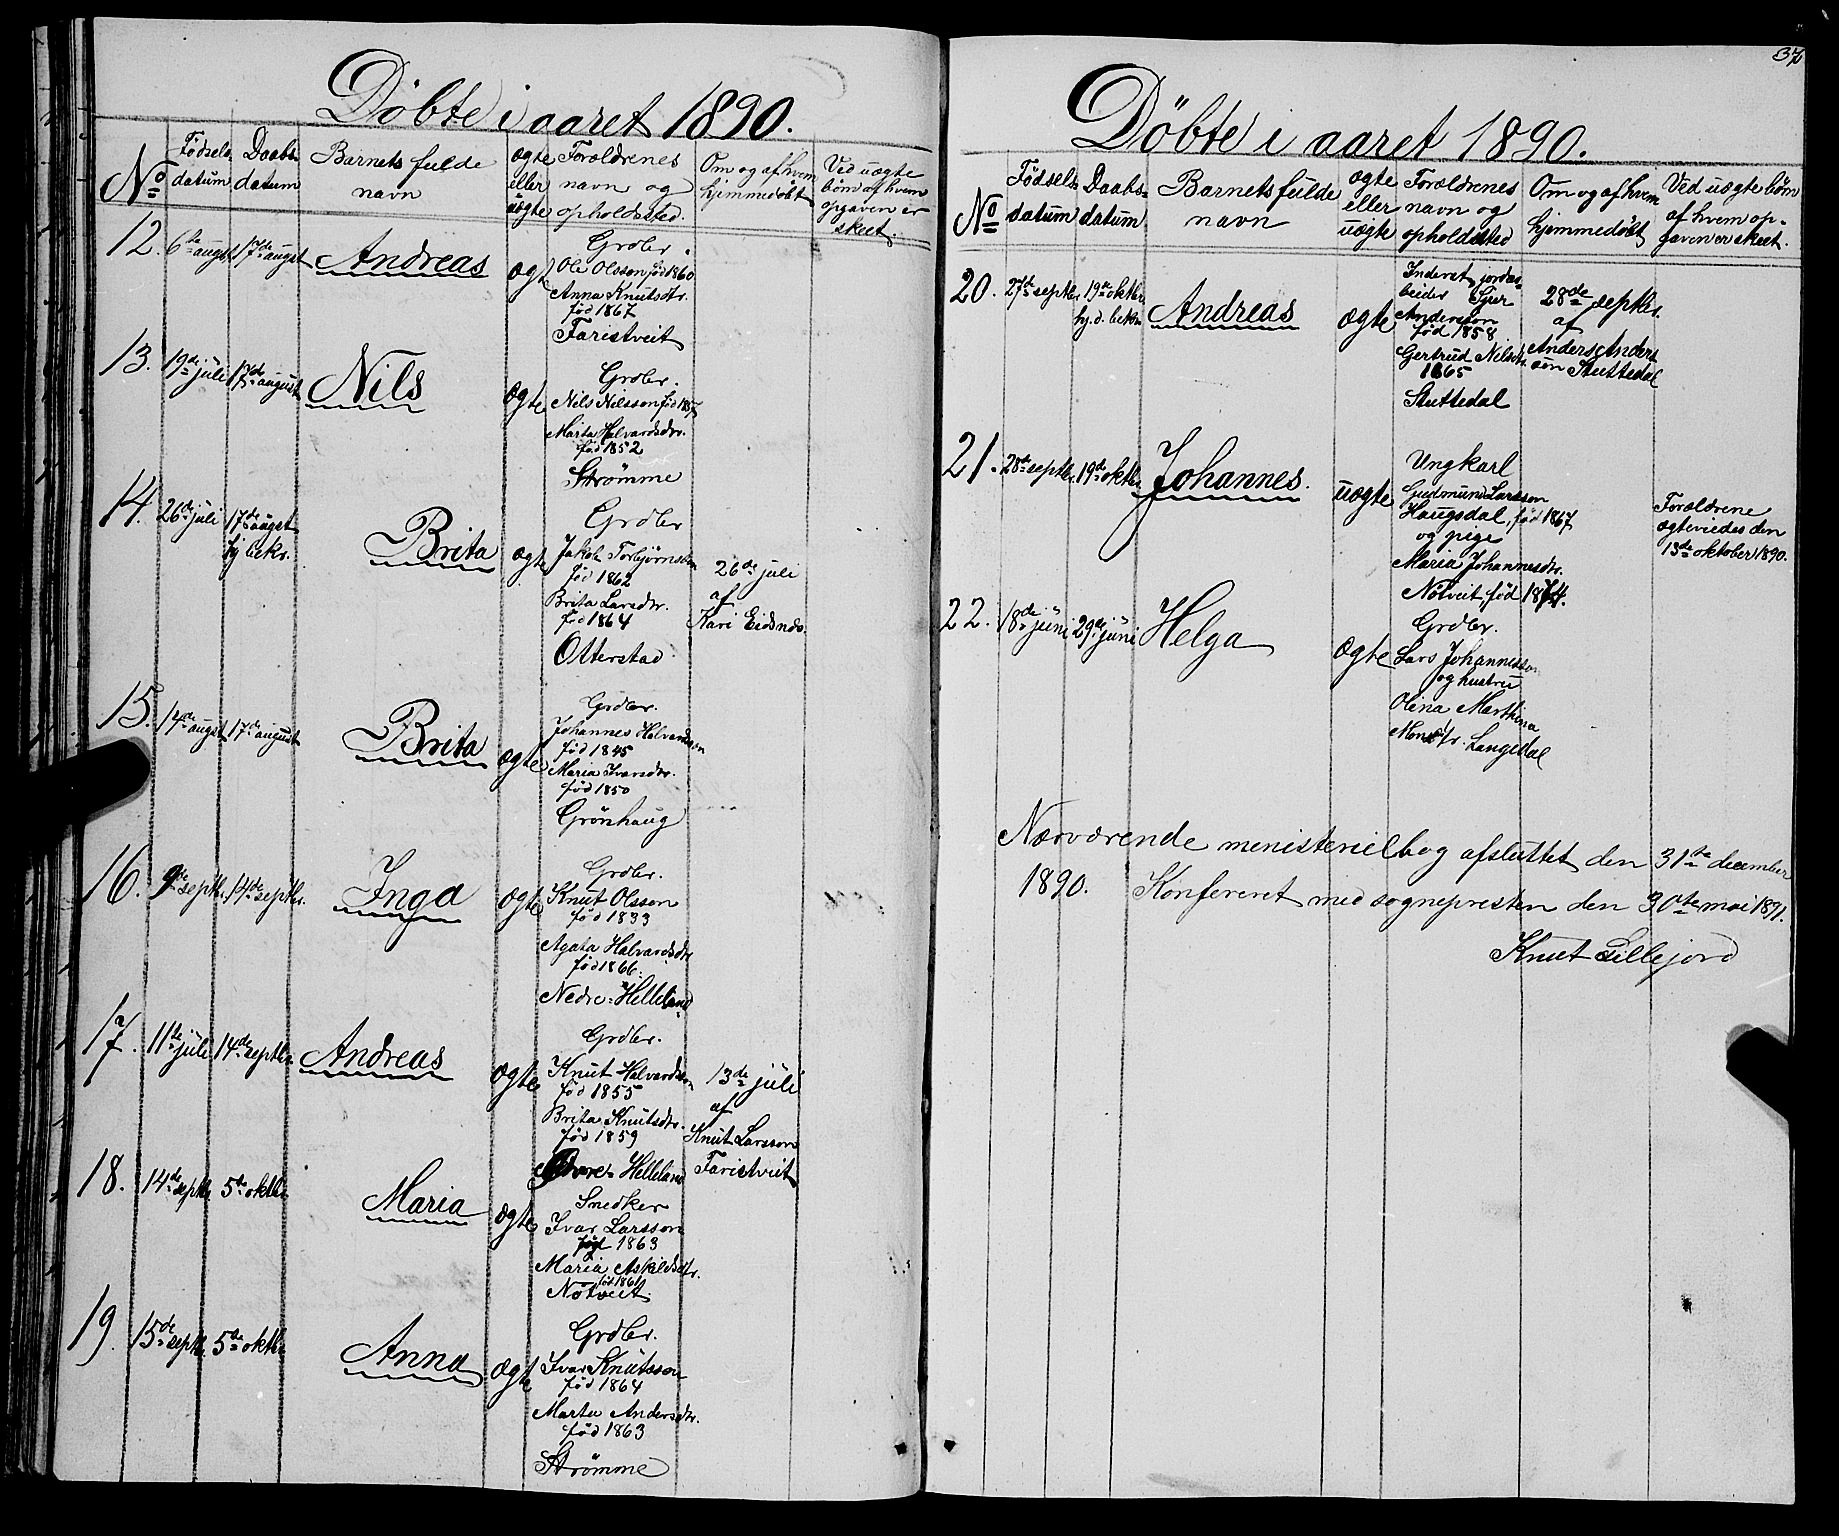 Döbte i aaret 1890.
No
Födsels datum
Daabs datum
Barnets fulde navn
ægte eller uægte
Forældrenes navn og opholdssted.
Om og af hvem hjemmedöbt
Ved uægte börn af hvem opgaven er skeet.
12. 6te augst 17de augst Andreas ægte
Grdbr.
Ole Olsson föd 1860
Anna Knutsdtr.
föd 1867
Faristveit
13. 19de juli 17de august Nils ægte
Grdbr.
Nils Nilsson föd 1857
Marta Halvardsdtr.
föd 1852
Strömme
14. 26de juli 17de augst
hj bekr.
Brita ægte
Grdbr
Jakob Torbjörnsson
föd 1862
Brita Larsdtr.
föd 1864
Otterstad
26de juli
af
Kari Eidsnes
15. 14de augst 17de august Brita ægte
Grdbr.
Johannes Halvardsson
föd 1845
Maria Ivarsdtr.
föd 1850
Grönhaug
16. 9de septbr. 14de septbr. Inga ægte
Grdbr.
Knut Olsson
föd 1833
Agata Halvardsdtr
föd 1866.
Nedre-Helleland
17. 11te juli 14de septbr Andreas ægte
Grdbr.
Knut Halvardsson
föd 1855
Brita Knutsdtr.
föd 1859
Helleland
13de juli
af
Knut Larsson
Faristveit
18. 14de septbr 5te oktbr Maria ægte
Snedker
Ivar Larsson
föd 1863
Maria Askildsdtr.
föd 1861
Nötveit.
19. 15de septbr 5te oktbr Anna ægte
Grdbr.
Ivar Knutsson
föd 1864
Marta Andersdtr.
föd 1863
Strömme
37
Döbte i aaret 1890.
No
Födsels datum
Daabs datum
Barnets fulde navn
ægte eller uægte
Forældrenes navn og opholdssted
Om og af hvem hjemmedöbt
Ved uægte börn af hvem opgaven er skeet.
20. 27de septbr 19de oktbr.
hj. d. bekr
Andreas ægte
Inderst, jordar
beider Sjur
Andersson
föd 1858
Gertrud Nilsdtr.
1865
Stuttedal
28de septbr.
af
Anders Anders
son Stuttedal
21. 28de septbr. 19de oktbr Johannes. uægte
Ungkarl
Gudmund Larsson
Haugsdal, föd 1867
og pige
Maria Johannesdtr.
Nötveit, föd 1874.
Forældrene
ægteviedes den
13de oktober 1890.
22. 18de juni 29de juni Helga ægte
Grdbr.
Lars Johannesson
og hustru
Olina Marthina
Monsdtr. Langedal
Nærværende ministerielbog afsluttet den 31te december
1890. Konfereret med sognepresten den 30te mai 1891.
Knut Lillejord